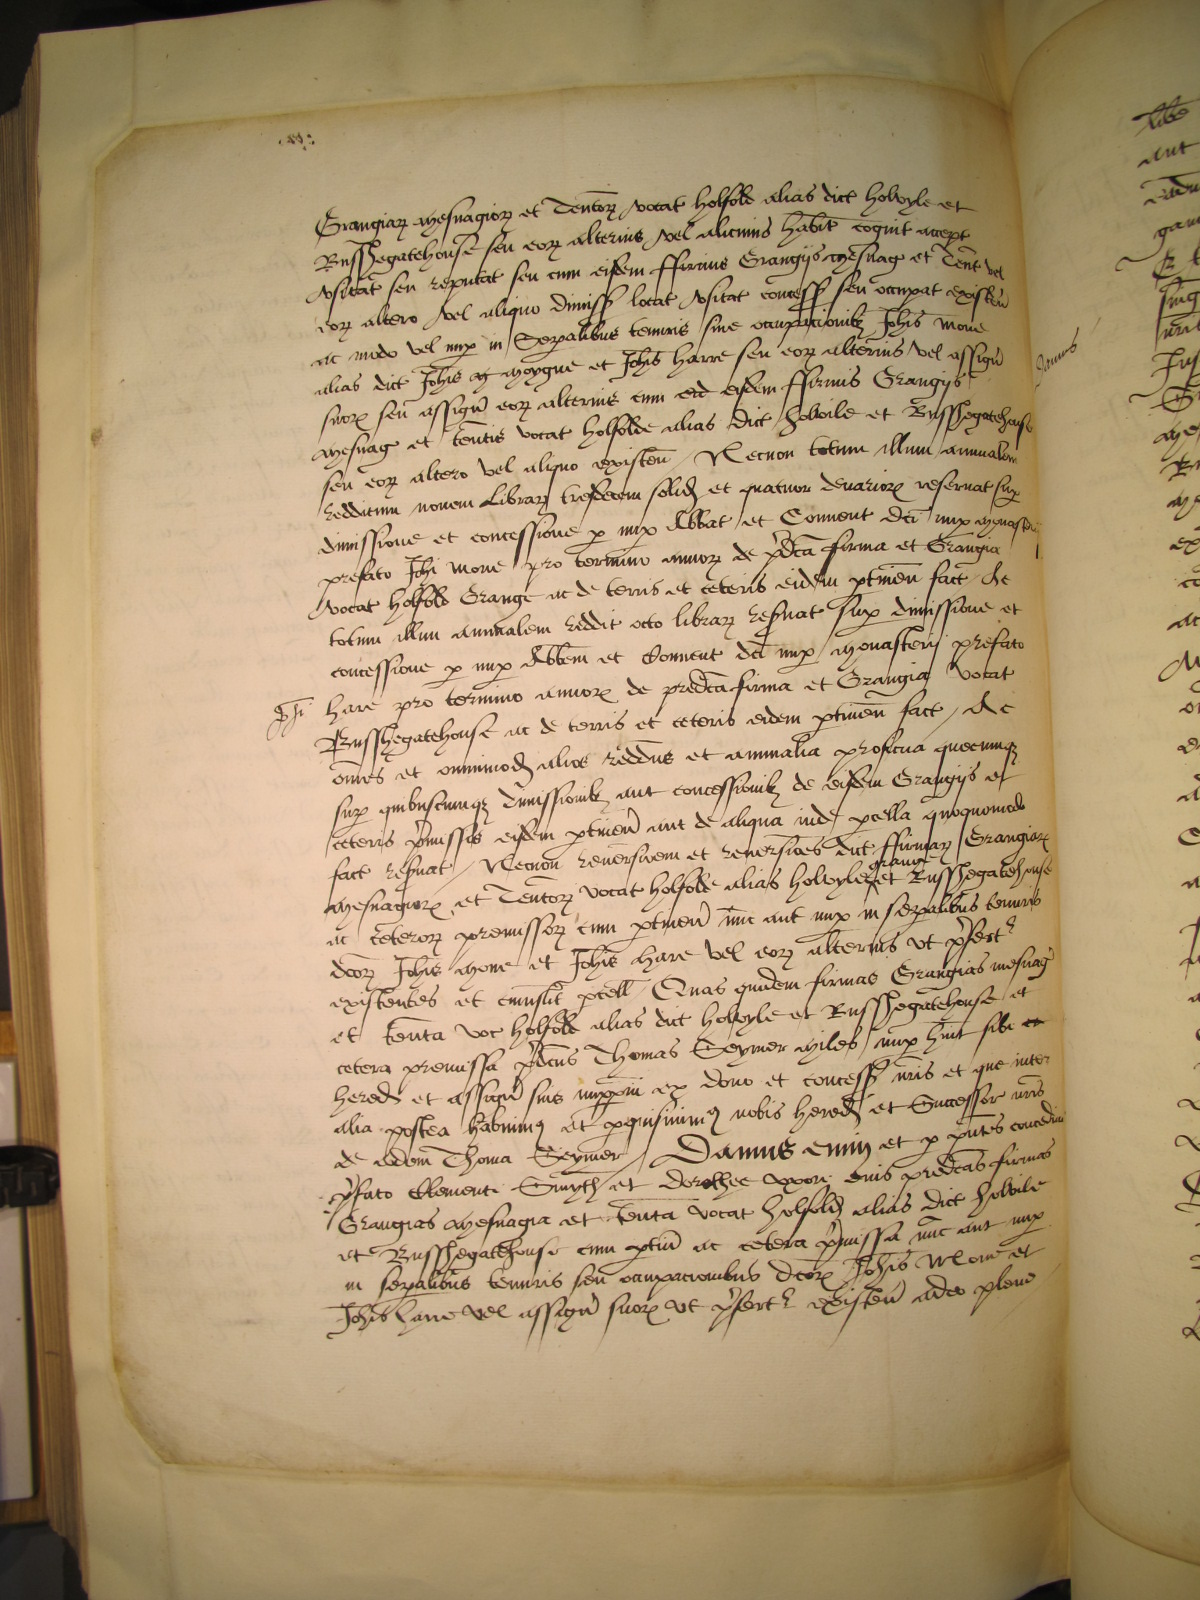 Grangiaꝝ Mesuagioꝝ et Tent̄oꝝ vocat holfold alias dict holvyle et
Russhegatehouse seu eoꝝ alterius vel alicuius habit̄ cognit accept
vsitat seu reputat seu cum eisdem ffirmis Grangijs Mesuag et Tent̄ vel
eoꝝ altero vel aliquo dimiss locat vsitat concess seu occupat existen̄
ac modo vel nup in Sep̄alibus tenuris siue occupac̄ionibꝫ Joh̄is Mone
alias dict Joh̄is Moygne et Joh̄is Harre seu eoꝝ alterius vel assign̄
suoꝝ seu assign̄ eoꝝ alterius cum eisdem ffirmis Grangijs
Mesuag et ten̄tis vocat holfolde alias dict holvile et Russhegatehouse
seu eoꝝ altero vel aliquo existen̄ / Necnon totum illum annualem
Redditum nouem Libraꝝ tresdecem solid et quatuor denarioꝝ reseruat sup
dimissione et concessione p nup Abbat et Conuent dc̄i nup Monasterij
prefato Joh̄i Mone pro termino annoꝝ de p̄dc̄a firma et Grangia
vocat holfold Grange ac de terris et ceteris eidem ptinen̄ fact / Ac
totum illum annualem Reddit octo libraꝝ resuat sup dimissione et
concessione p nup Abbem et Conuent dc̄i nup Monasterij prefato
Joh̄i
hare pro termino annoꝝ de predc̄a firma et Grangia vocat
Russhegatehouse ac de terris et ceteris eidem ptinen̄ fact / Ac
om̄es et omnimod alios redditus et annualia proficua quecumqꝫ
sup quibuscumqꝫ Dimissionibꝫ aut concessionibꝫ de eisdem Grangijs et
ceteris p̄missis eisdem ptinen̄ aut de aliqua inde pcella quoquomodo
fact resuat / Necnon reuersionem et reuersiones dict ffirmaꝝ Grangiaꝝ
Mesuagioꝝ et Tent̄oꝝ vocat holfolde alias holvyle grang et Russhegatehouse
ac ceteroꝝ premissoꝝ cum ptinen̄ nūc aut nup in sep̄alibus tenuris
dc̄oꝝ Joh̄is Mone et Joh̄is Hare vel eoꝝ alterius vt p̄fert
existentes et cuiuslit pcell / Quas quidem firmas Grangias mesuag
et ten̄ta voc holfold alias dict holvyle et Russhegatehouse et
cetera premissa p̄dc̄us Thomas Seymer Miles nup h̄uit sibi et
hered et assign̄ suis imppm ex dono et concess nr̄is et que inter
alia postea habuimꝰ et pquisiuimꝰ nobis hered et Successor nr̄is
de eodem Thoma Seymer / Damus eciam et p pn̄tes concedim
p̄fato Clementi Smyth et Dorothee vxori eius predc̄as firmas
Grangias Mesuagia et ten̄ta vocat holfold alias dict holvile
et Russhegatehouse cum ptin̄ ac cetera p̄missa nūc aut nup
in sep̄alibus tenuris seu occupacionibus dc̄oꝝ Joh̄is Mone et
Joh̄is hare vel assign̄ suoꝝ vt p̄fert existen̄ adeo plene